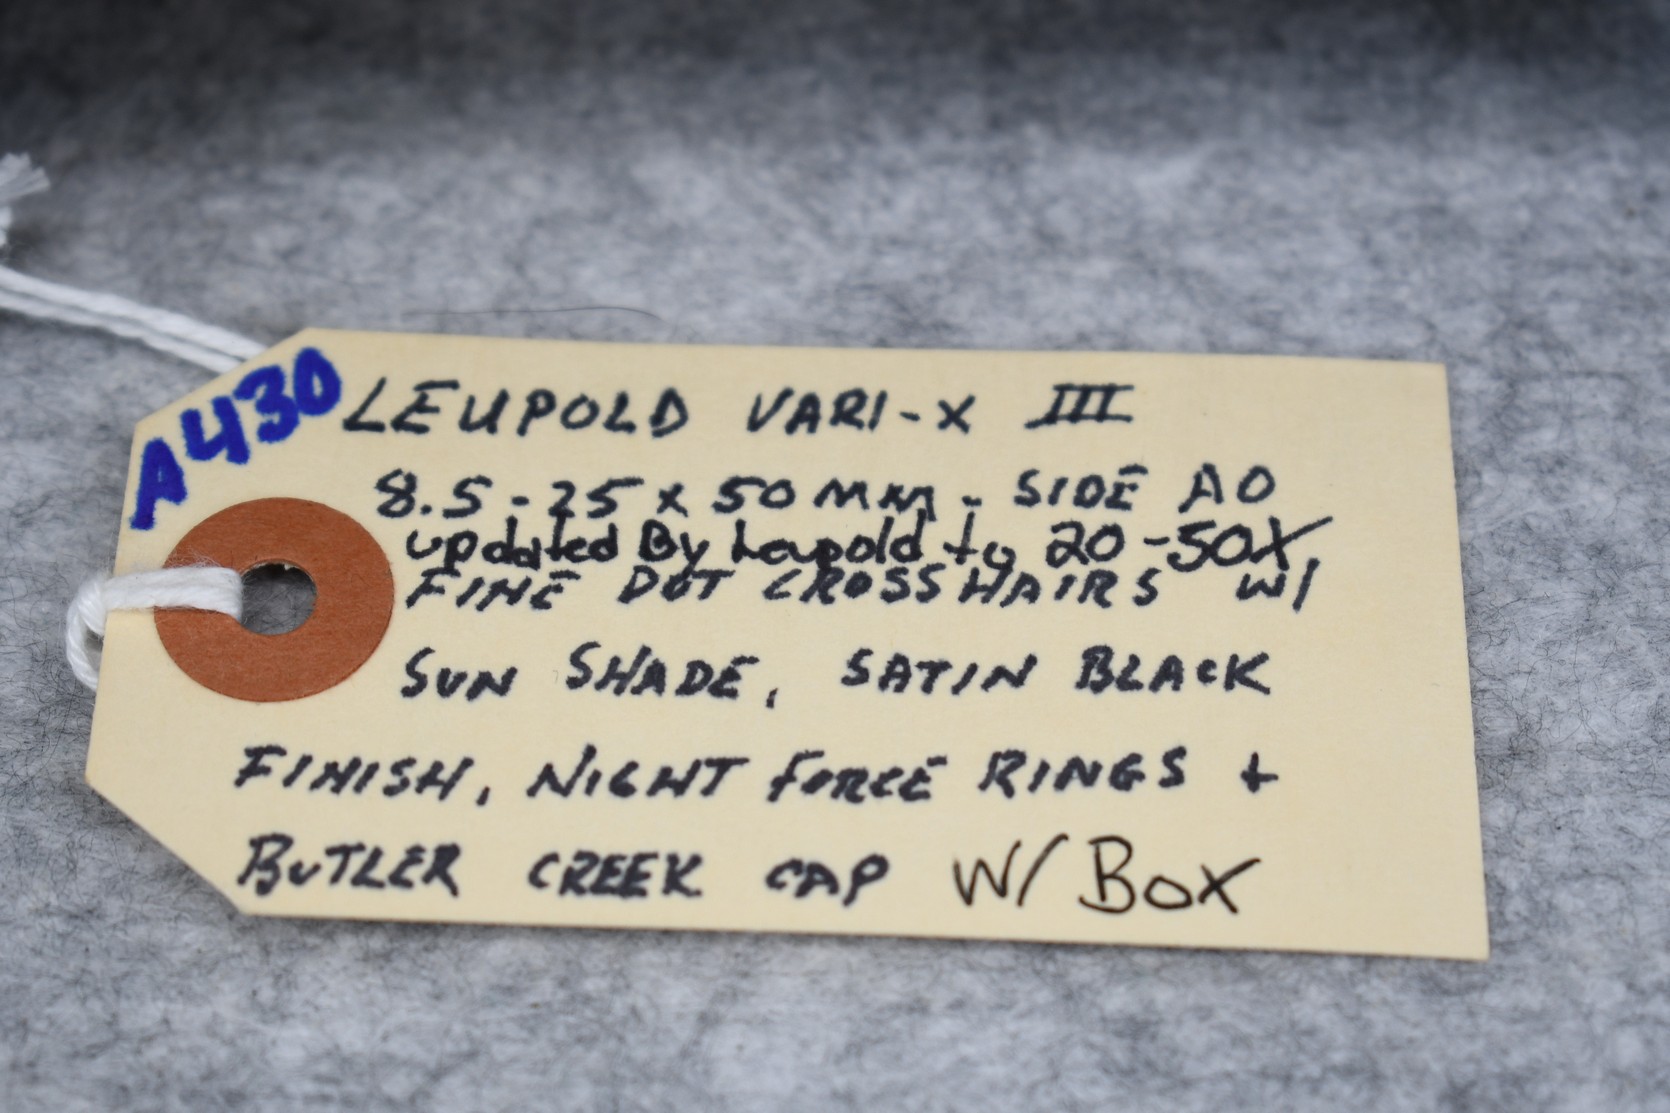 A430
LEUPOLD VARI-X III
8.5-25 x 50 MM - SIDE AO
updated By Leupold to 20-50X
FINE DOT CROSSHAIRS W/
SUN SHADE, SATIN BLACK
FINISH, NIGHT FORCE RINGS +
BUTLER CREEK CAP W/ BOX